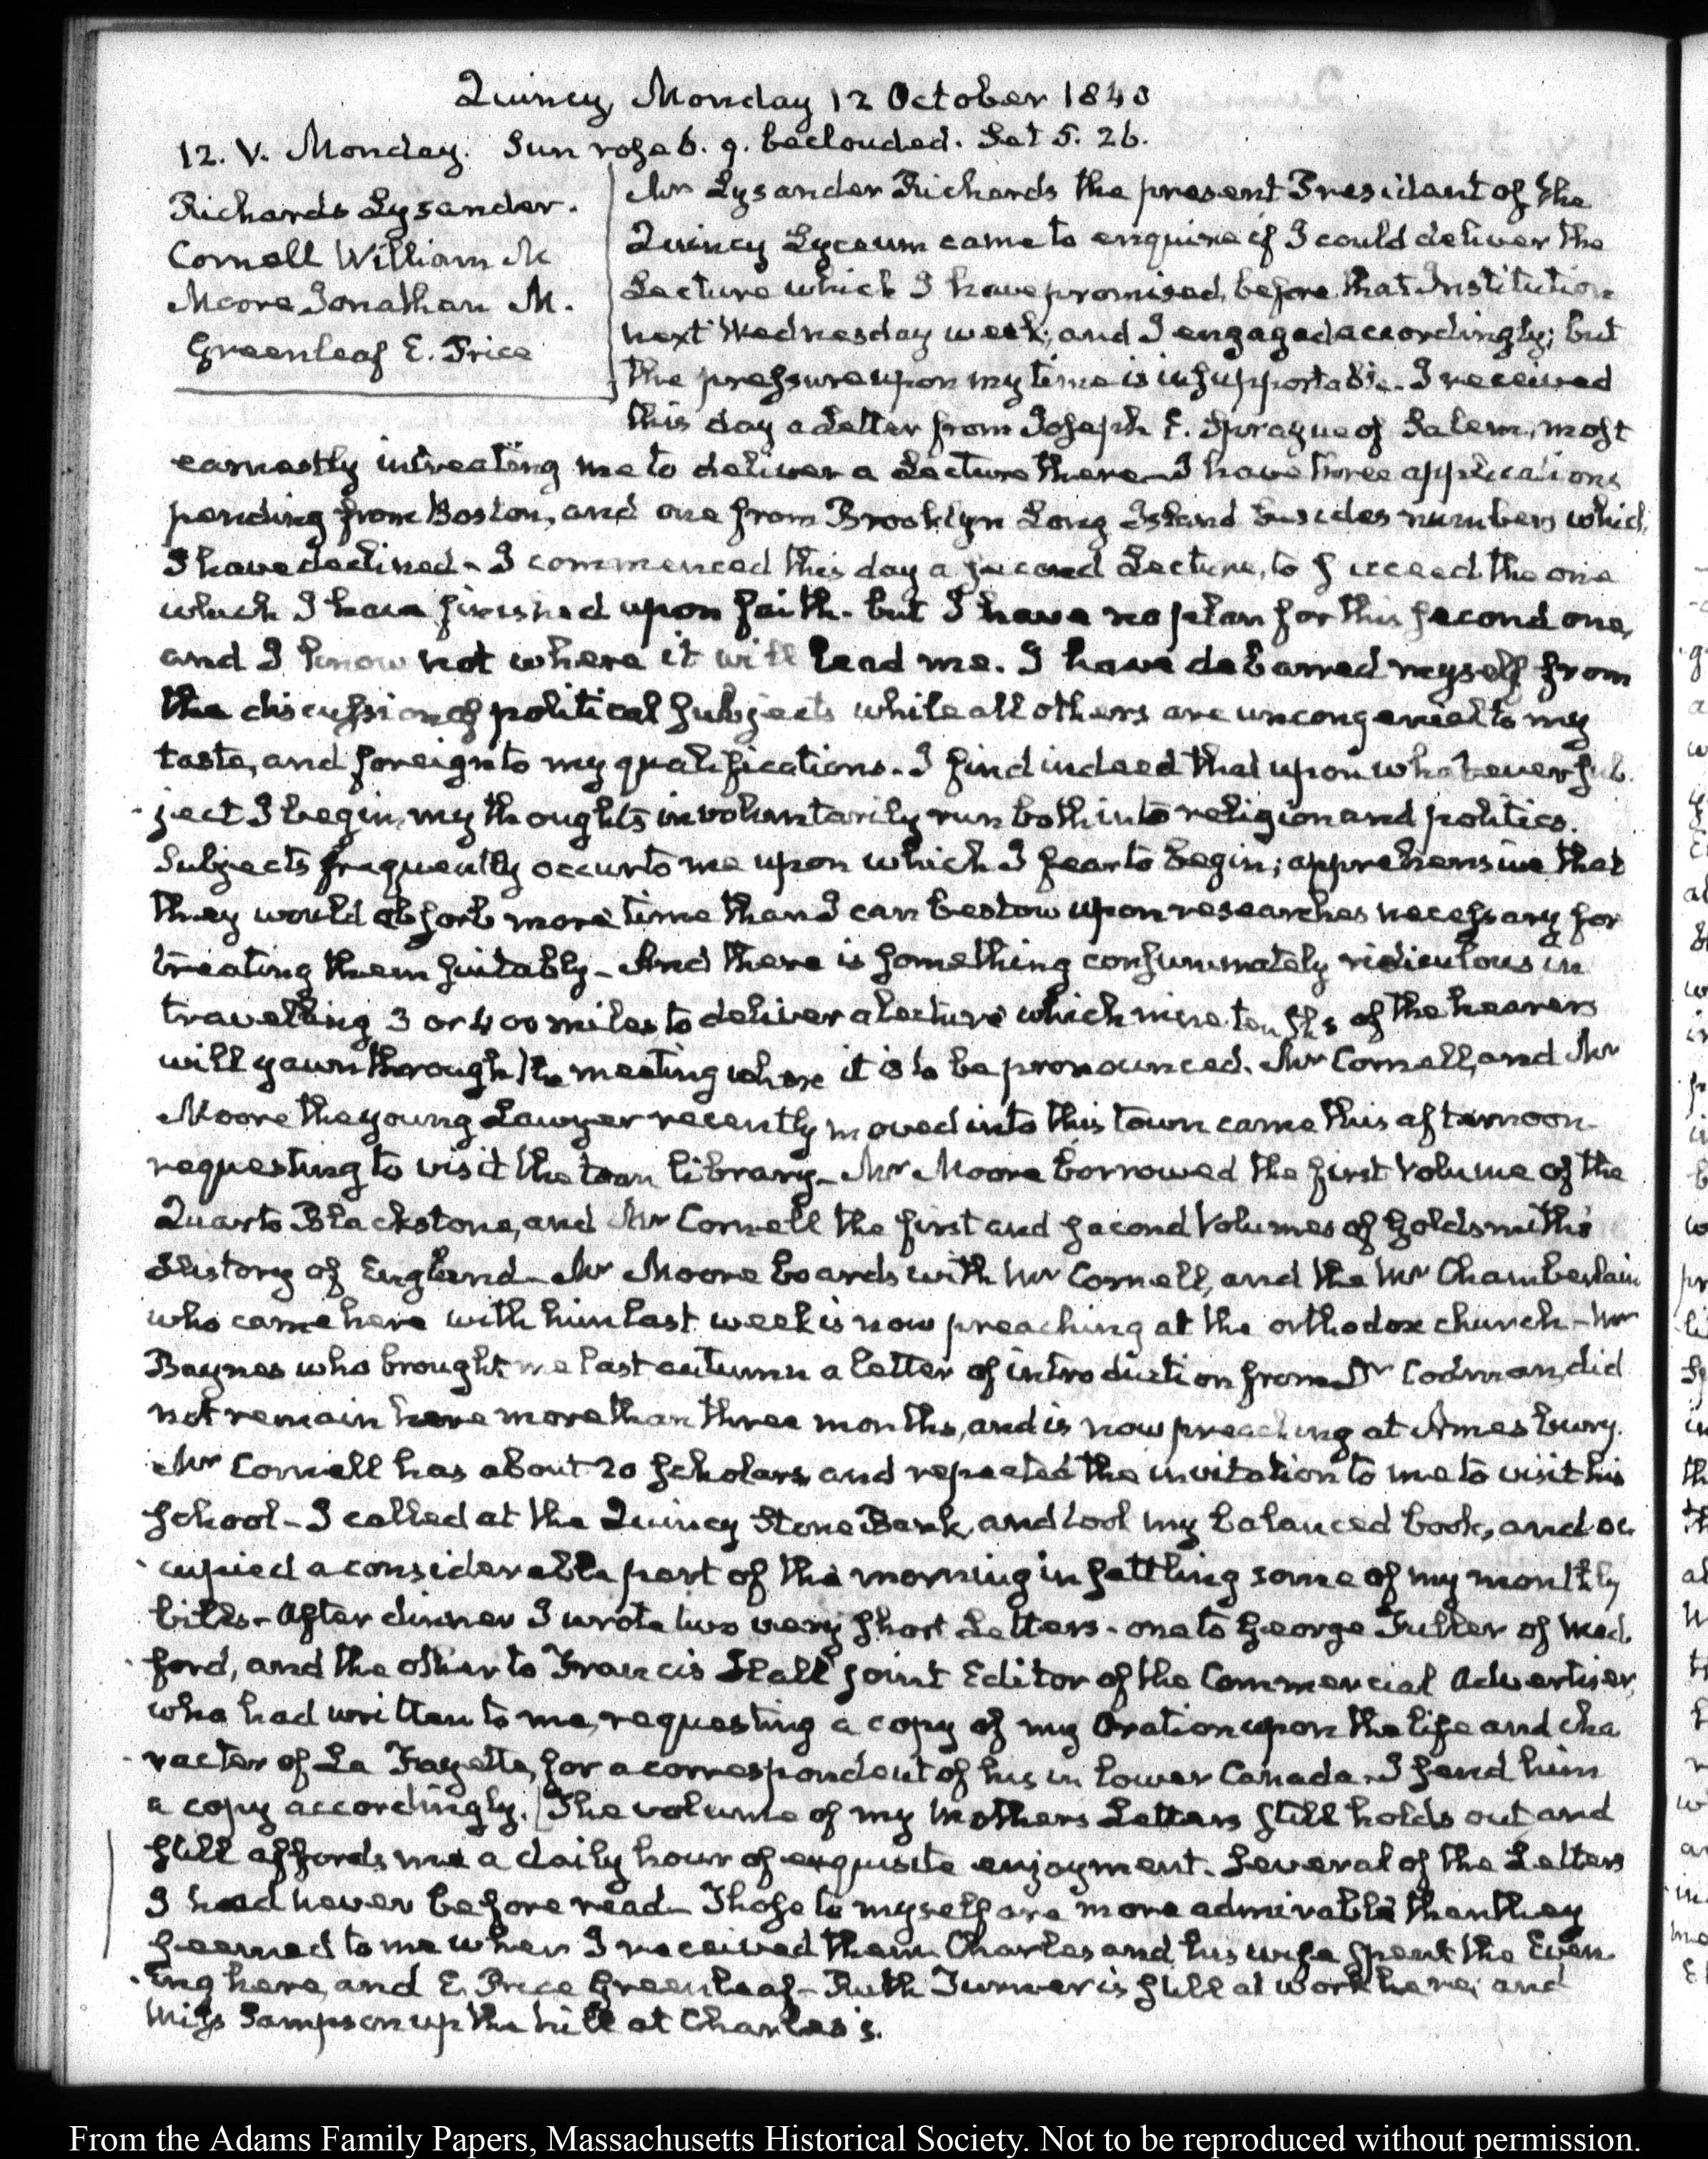 Quincy, Monday 12 October 1840
12. V. Monday. Sun rose 6. 9. beclouded. Set 5. 26.
Richards Lysander.
Cornell William M
Moore Jonathan M.
Greenleaf E. Price
Mr Lysander Richards the present President of the
Quincy Lyceum came to enquire if I could deliver the
Lecture which I have promised, before that Institution
next Wednesday week; and I engaged accordingly; but
the pressure upon my time is insupportable. I received
this day a Letter from Joseph E. Sprague of Salem, most
earnestly intreating me to deliver a Lecture there— I have three applications
pending from Boston, and one from Brooklyn Long Island besides numbers which
I have declined— I commenced this day a second Lecture, to succeed the one
which I have finished upon faith. but I have no plan for this second one,
and I know not where it will lead me. I have debarred myself from
the discussion of political subjects while all others are uncongenial to my
taste, and foreign to my qualifications. I find indeed that upon whatever sub-
ject I begin, my thoughts involuntarily run both into religion and politics.
Subjects frequently occur to me upon which I fear to begin; apprehensive that
they would absorb more time than I can bestow upon researches necessary for
treating them suitably— And there is something consummately ridiculous in
travelling 3 or 400 miles, to deliver a lecture which nine tenths of the hearers
will yawn through the meeting where it is to be pronounced. Mr Cornell, and Mr
Moore the young Lawyer recently moved into this town came this afternoon
requesting to visit the town library— Mr Moore borrowed the first Volume of the
Quarto Blackstone, and Mr Cornell the first and second Volumes of Goldsmith's
History of England— Mr Moore boards with Mr Cornell, and the Mr Chamberlain
who came here with him last week is now preaching at the orthodox church— Mr
Baynes who brought me last autumn a letter of introduction from Dr Codman, did
not remain here more than three months, and is now preaching at Amesbury.
Mr Cornell has about 20 scholars and repeated the invitation to me to visit his
school— I called at the Quincy Stone Bank, and took my balanced book, and oc-
cupied a considerable part of the morning in settling some of my monthly
bills— After dinner I wrote two very short Letters— one to George Fuller of Med-
ford, and the other to Francis Hall joint Editor of the Commercial Advertiser,
who had written to me, requesting a copy of my Oration upon the life and cha-
racter of La Fayette, for a correspondent of his in lower Canada. I send him
a copy accordingly. The volume of my Mothers Letters still holds out and
still affords me a daily hour of exquisite enjoyment. Several of the Letters
I had never before read— Those to myself are more admirable than they
seemed to me when I received them. Charles and his wife spent the Even-
ing here, and E. Price Greenleaf— Ruth Turner is still at work here, and
Miss Sampson up the hill at Charles's.
From the Adams Family Papers, Massachusetts Historical Society. Not to be reproduced without permission.